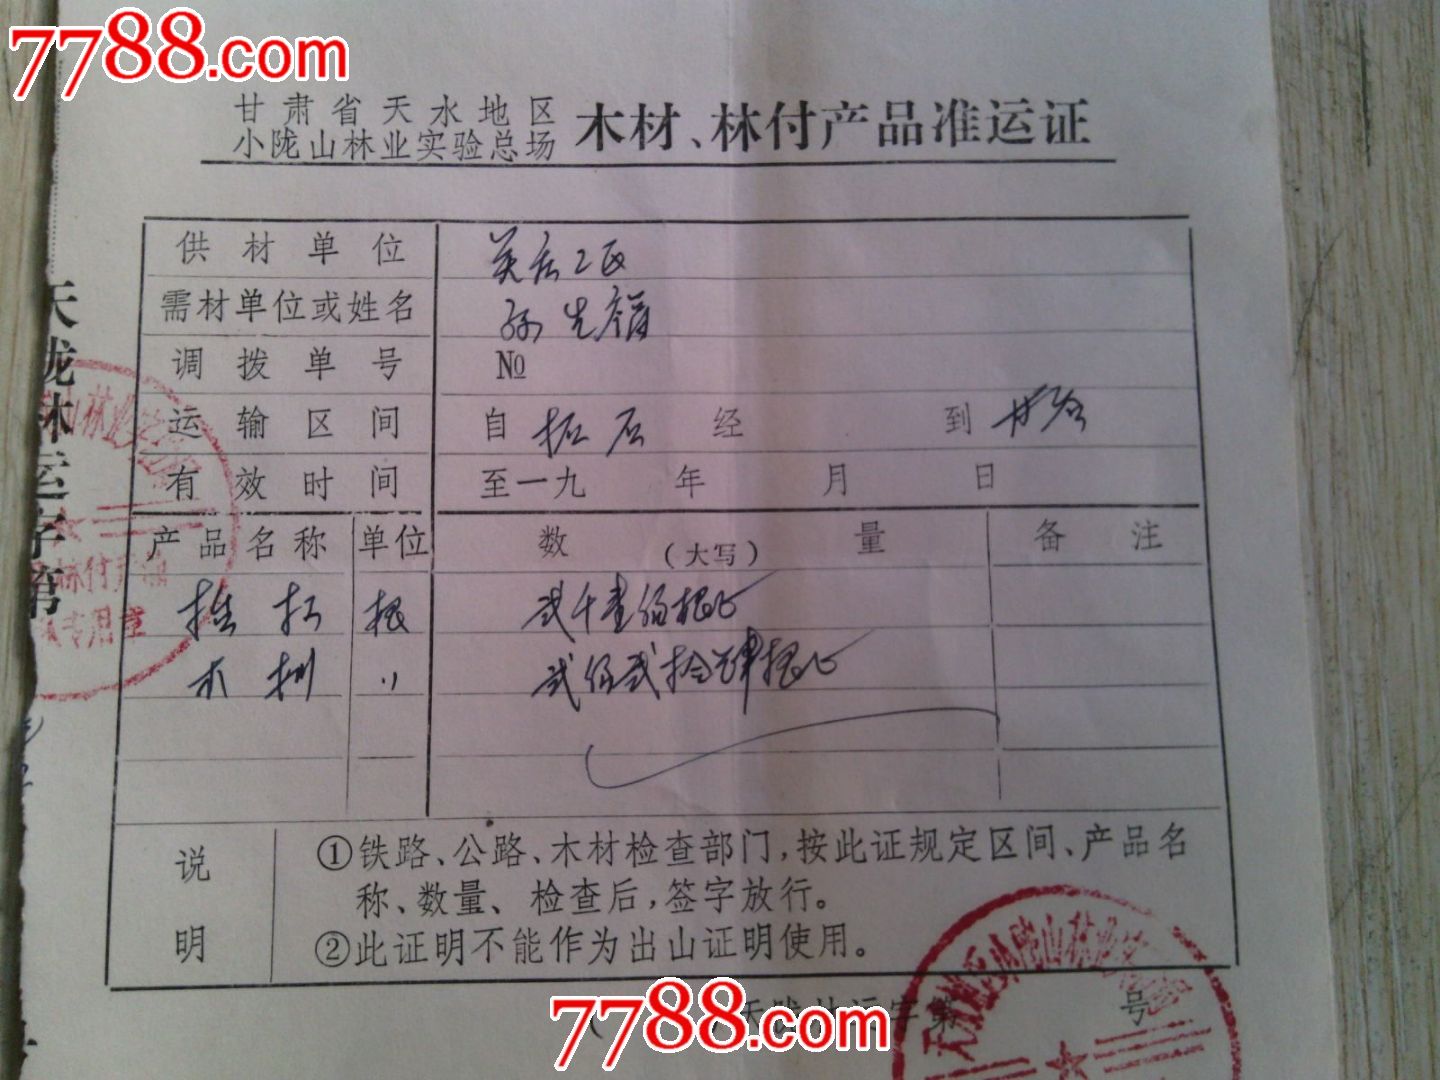 7788.com
甘肃省天水地区
小陇山林业实验总场 木材、林付产品准运证
供材单位
需材单位或姓名 孙先
调拨单号 №
运输区间 自 拓石 经 到 甘谷
有效时间 至一九 年 月 日
产品名称 单位 数 (大写) 量 备注
根 弍千壹佰根正
〃 弍佰弍拾肆根正
说明 ①铁路、公路、木材检查部门,按此证规定区间、产品名
称、数量、检查后,签字放行。
②此证明不能作为出山证明使用。
天陇林运字第 号
7788.com
天陇林运字第
山林业
林付
专用章
小陇山林业